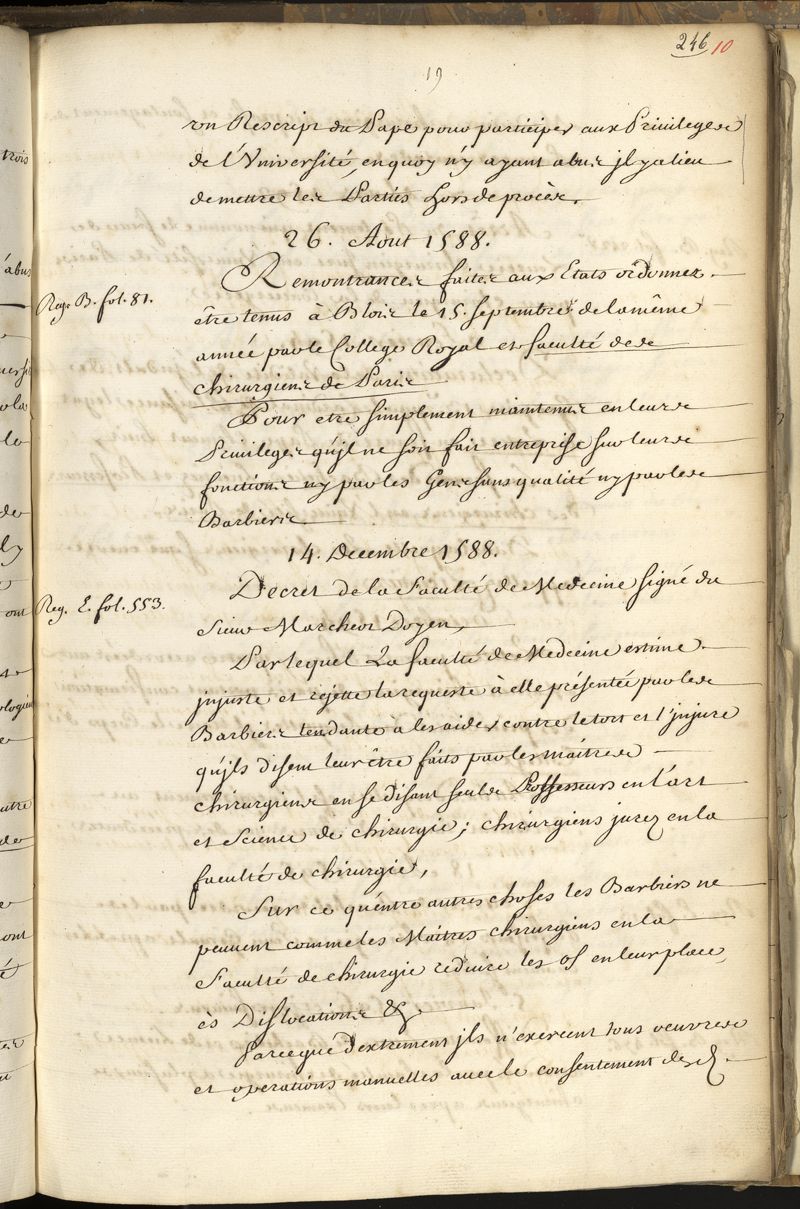 246 10
19
un Rescript du Pape pour participer aux Privileges
de l'Université, en quoy n'y ayant abus jl y a lieu
de mettre les Parties hors de procès.
26. Aout 1588.
Reg. B. fol. 81.
Remontrances faites aux Etats ordonnez
être tenus à Blois le 15. Septembre de la même
année par le College Royal et faculté des
chirurgiens de Paris
Pour etre simplement maintenus en leurs
Privileges qu'jl ne soit fait entreprise sur leurs
fonctions ny par les Gens sans qualité ny par les
Barbiers
14. Decembre 1588.
Reg. E. fol. 553.
Decret de la Faculté de Medecine signé du
Sieur Marcheor Doyen,
Par lequel La faculté de Medecine estime
jnjuste et rejette la requeste à elle présentée par les
Barbiers tendante à les aider contre le tort et l'jnjure
qu'jls disent leur être faits par les maîtres
chirurgiens en se disant seuls Professeurs en l'art
et Science de chirurgie; chirurgiens jurez en la
faculté de chirurgie,
Sur ce qu'entre autres choses les Barbiers ne
peuvent comme les Maitres chirurgiens en la
Faculté de chirurgie reduire les os en leur place,
ès Dislocations &c
Parce que d'extrement jls n'exercent tous oeuvres
et operations manuelles avec le consentement des d.